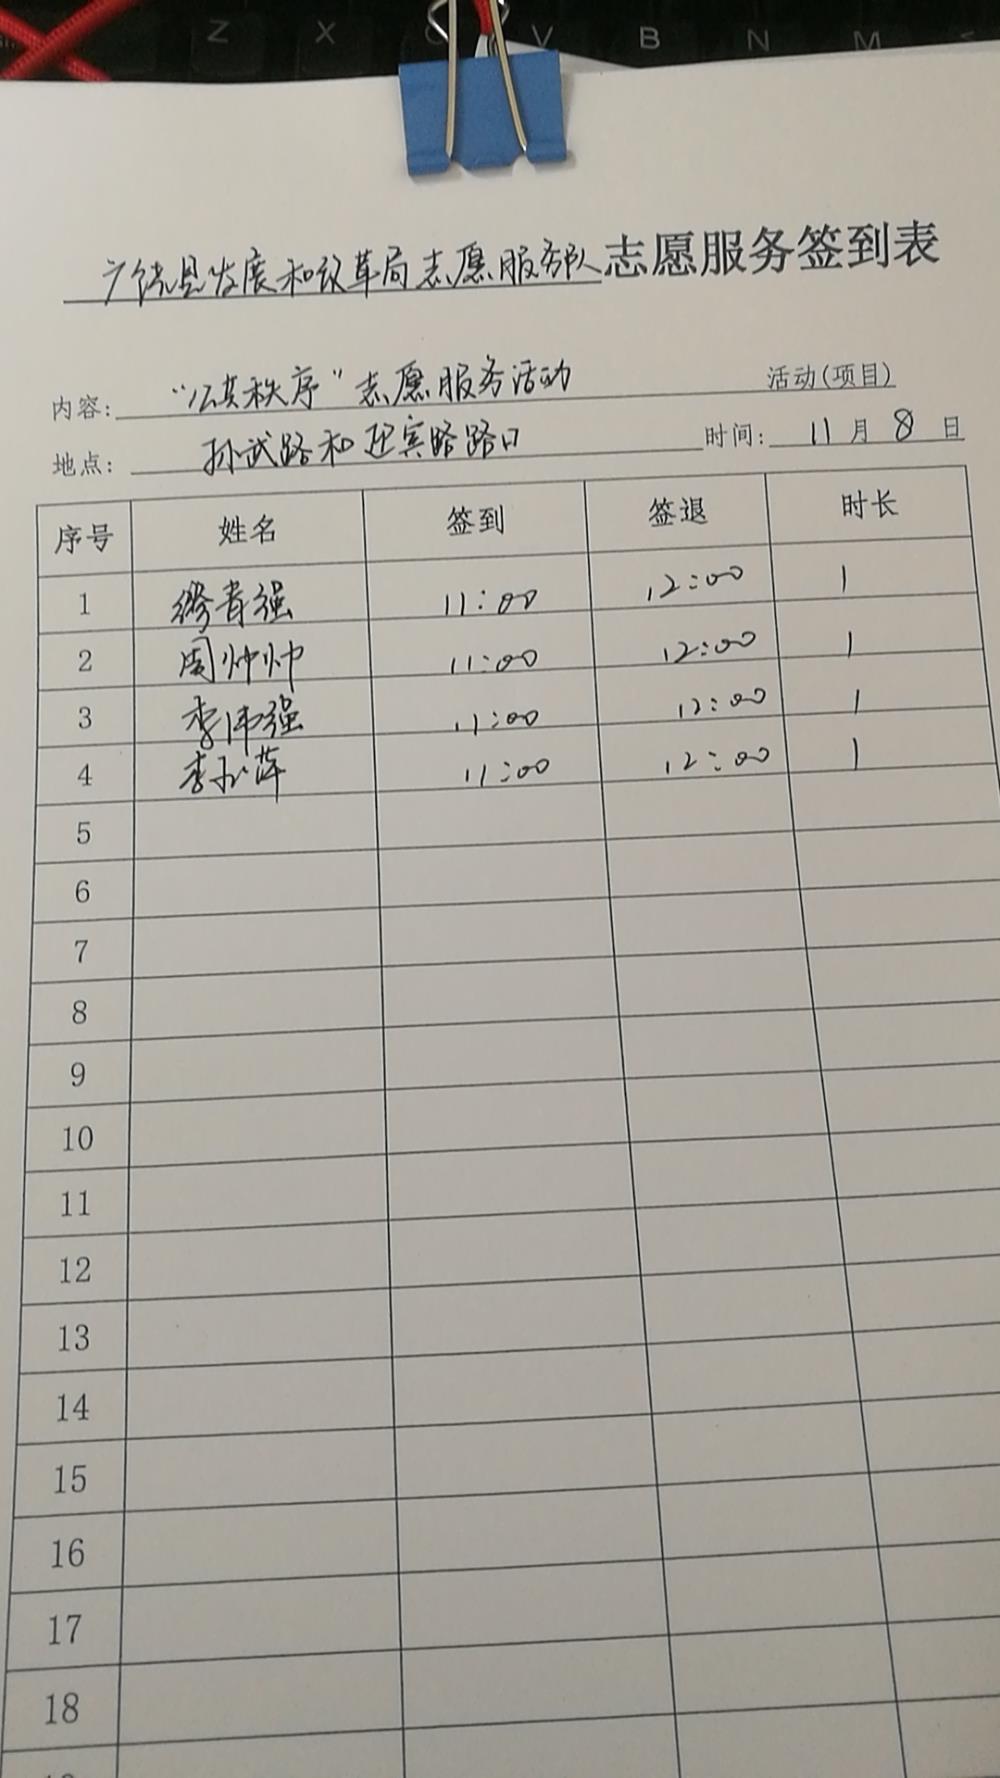 Z X C V B N M
广饶县发展和改革局志愿服务队志愿服务签到表
内容: “公共秩序”志愿服务活动 活动(项目)
地点: 孙武路和迎宾路路口 时间: 11 月 8 日
序号 姓名 签到 签退 时长
1 缪青强 11:00 12:00 1
2 周帅帅 11:00 12:00 1
3 李伟强 11:00 12:00 1
4 李 萍 11:00 12:00 1
5
6
7
8
9
10
11
12
13
14
15
16
17
18